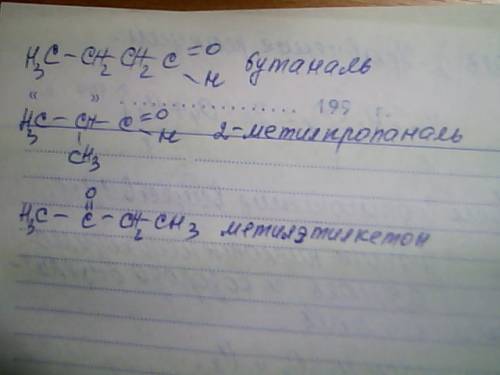 H₃C – CH₂ – CH₂ – C =O бутаналь
H
« » 199 г.
H₃C – CH – C =O 2-метилпропаналь
H
CH₃
O
H₃C – C – CH₂ – CH₃ метилэтилкетон